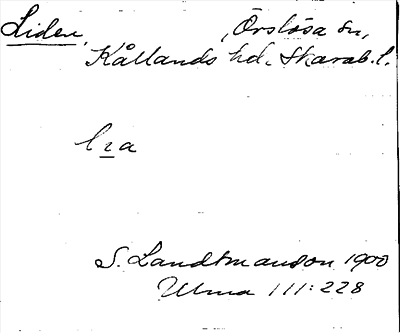 Liden, Örslösa sn,
Kållands hd. Skarab. l.
lza
S. Landtmanson 1900
Ulma 111:228